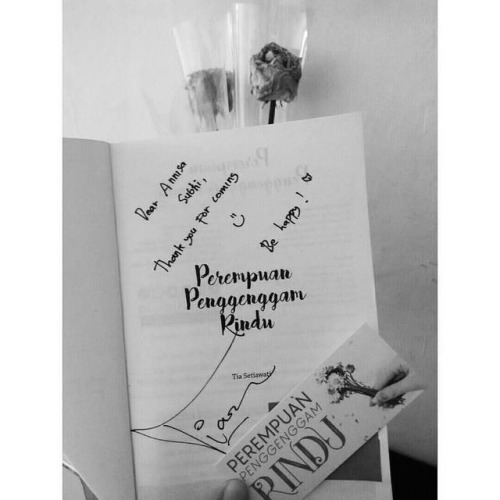 Dear Annisa
Subhi,
Thank you for coming
Be happy!
Perempuan
Penggenggam
Rindu
Tia Setiawati
PEREMPUAN
PENGGENGGAM
RINDU